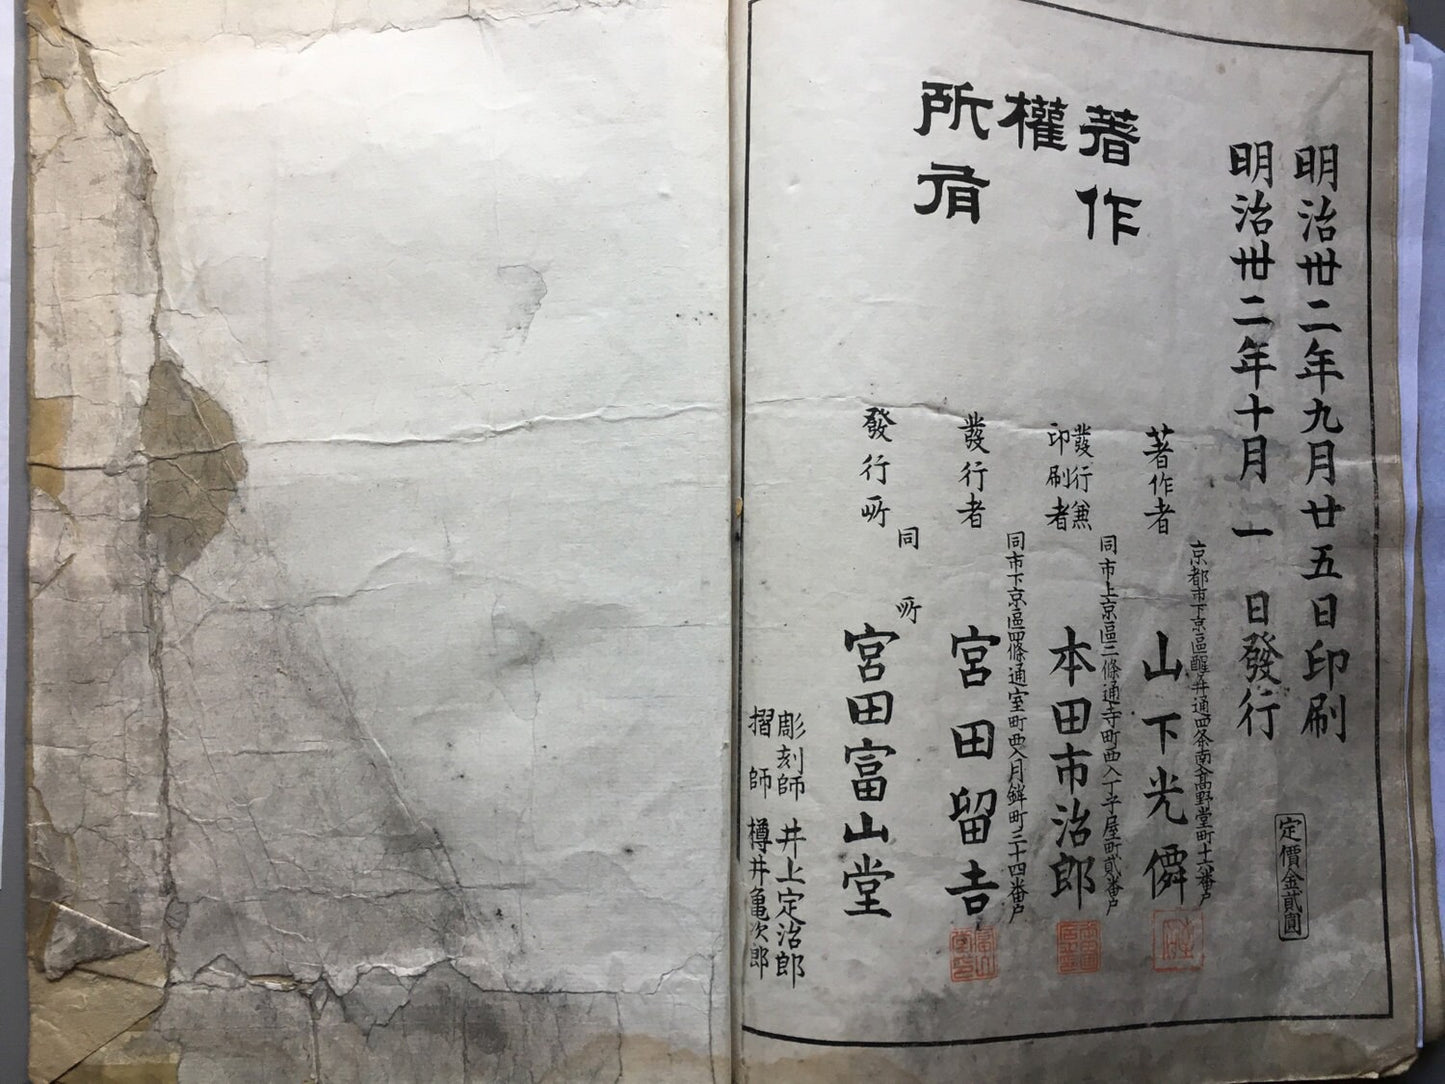 明治卅二年九月廿五日印刷
明治卅二年十月一日發行
定價金貳圓
著作
權
所有
京都市下京區醒井通四条南入高野堂町十六番戸
著作者 山下光僯
同市上京區二條通寺町西入丁子屋町貳番戸
發行兼
印刷者 本田市治郎
同市下京區四條通室町西入月鉾町三十四番戸
發行者 宮田留吉
同所
發行所 宮田富山堂
彫刻師 井上定治郎
摺師 樽井亀次郎